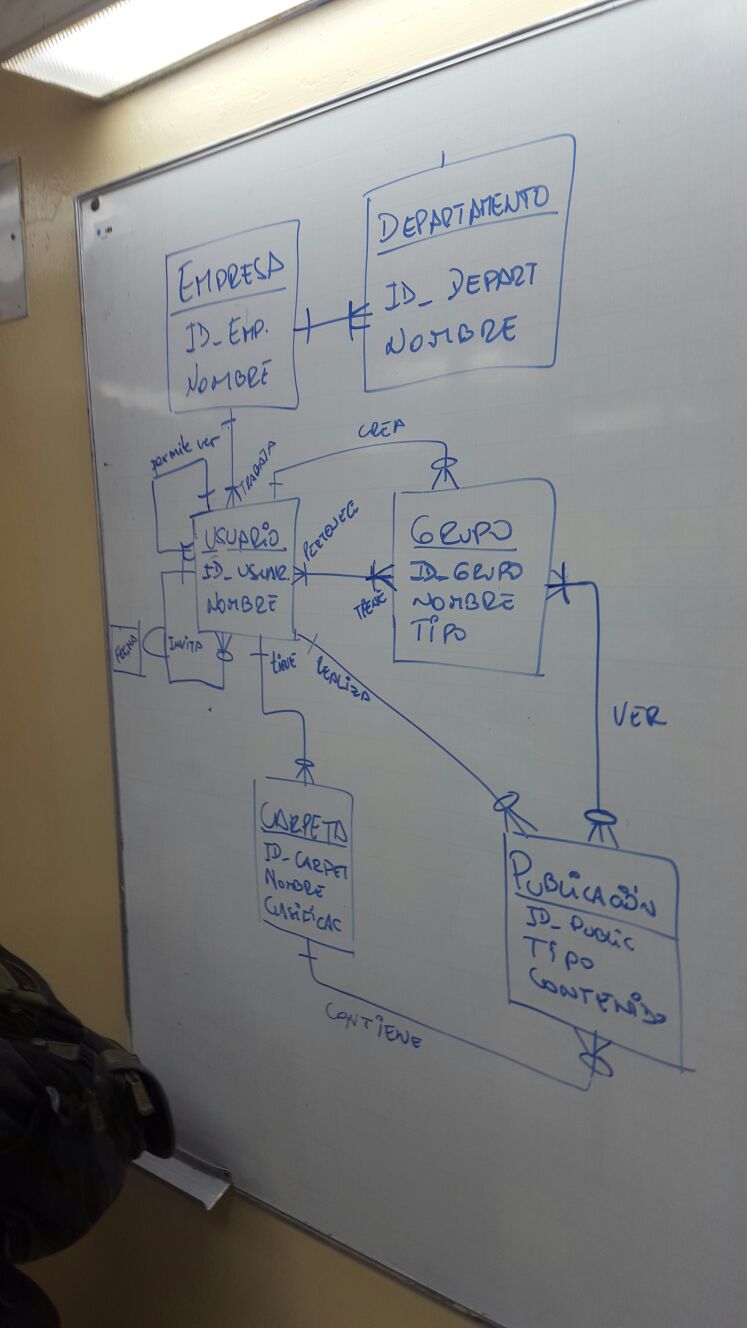 DEPARTAMENTO
ID_DEPART
NOMBRE
EMPRESA
ID_EMP.
NOMBRE
permite ver
TRABAJA
CREA
USUARIO
ID_USUAR.
NOMBRE
PERTENECE
TIENE
GRUPO
ID_GRUPO
NOMBRE
TIPO
FECHA
INVITA
tiene
REALIZA
VER
CARPETA
ID_CARPET
NOMBRE
CLASIFICAC
PUBLICACIÓN
ID_PUBLIC
TIPO
CONTENIDO
CONTIENE